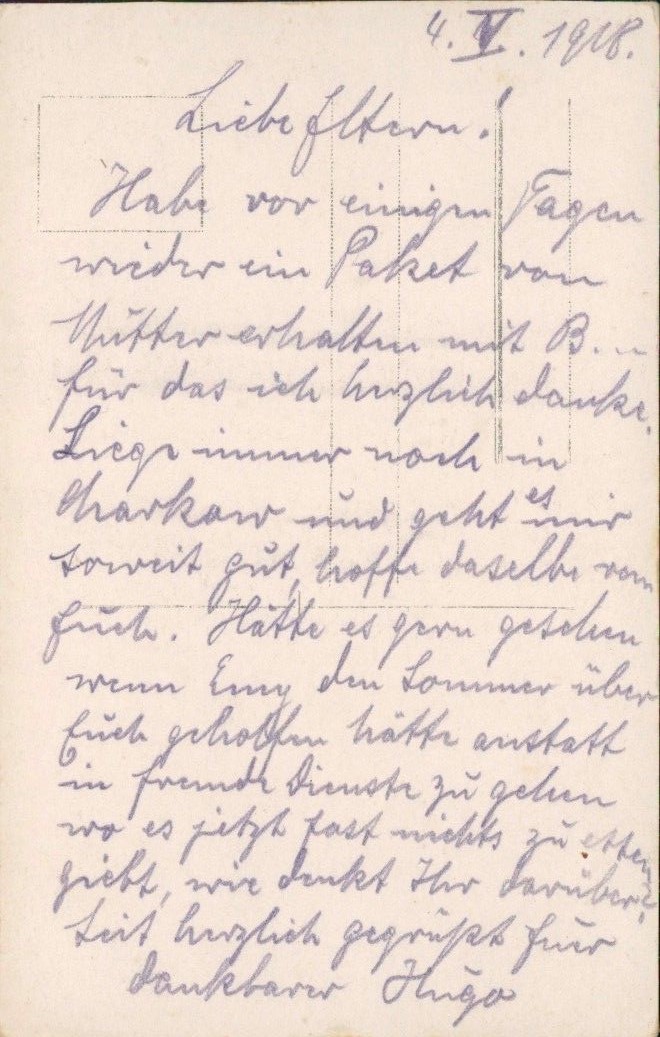 4. V. 1918.
Liebe Eltern!
Habe vor einigen Tagen
wieder ein Paket von
Mutter erhalten mit B...
für das ich herzlich danke.
Liege immer noch in
Charkow und geht es mir
soweit gut, hoffe daselbe von
Euch. Hätte es gern gesehen
wenn Emy den Sommer über
Euch geholfen hätte anstatt
in fremde Dienste zu gehen
wo es jetzt fast nichts zu essen
giebt, wie denkt Ihr darüber?
Seit herzlich gegrüßt Euer
dankbarer Hugo